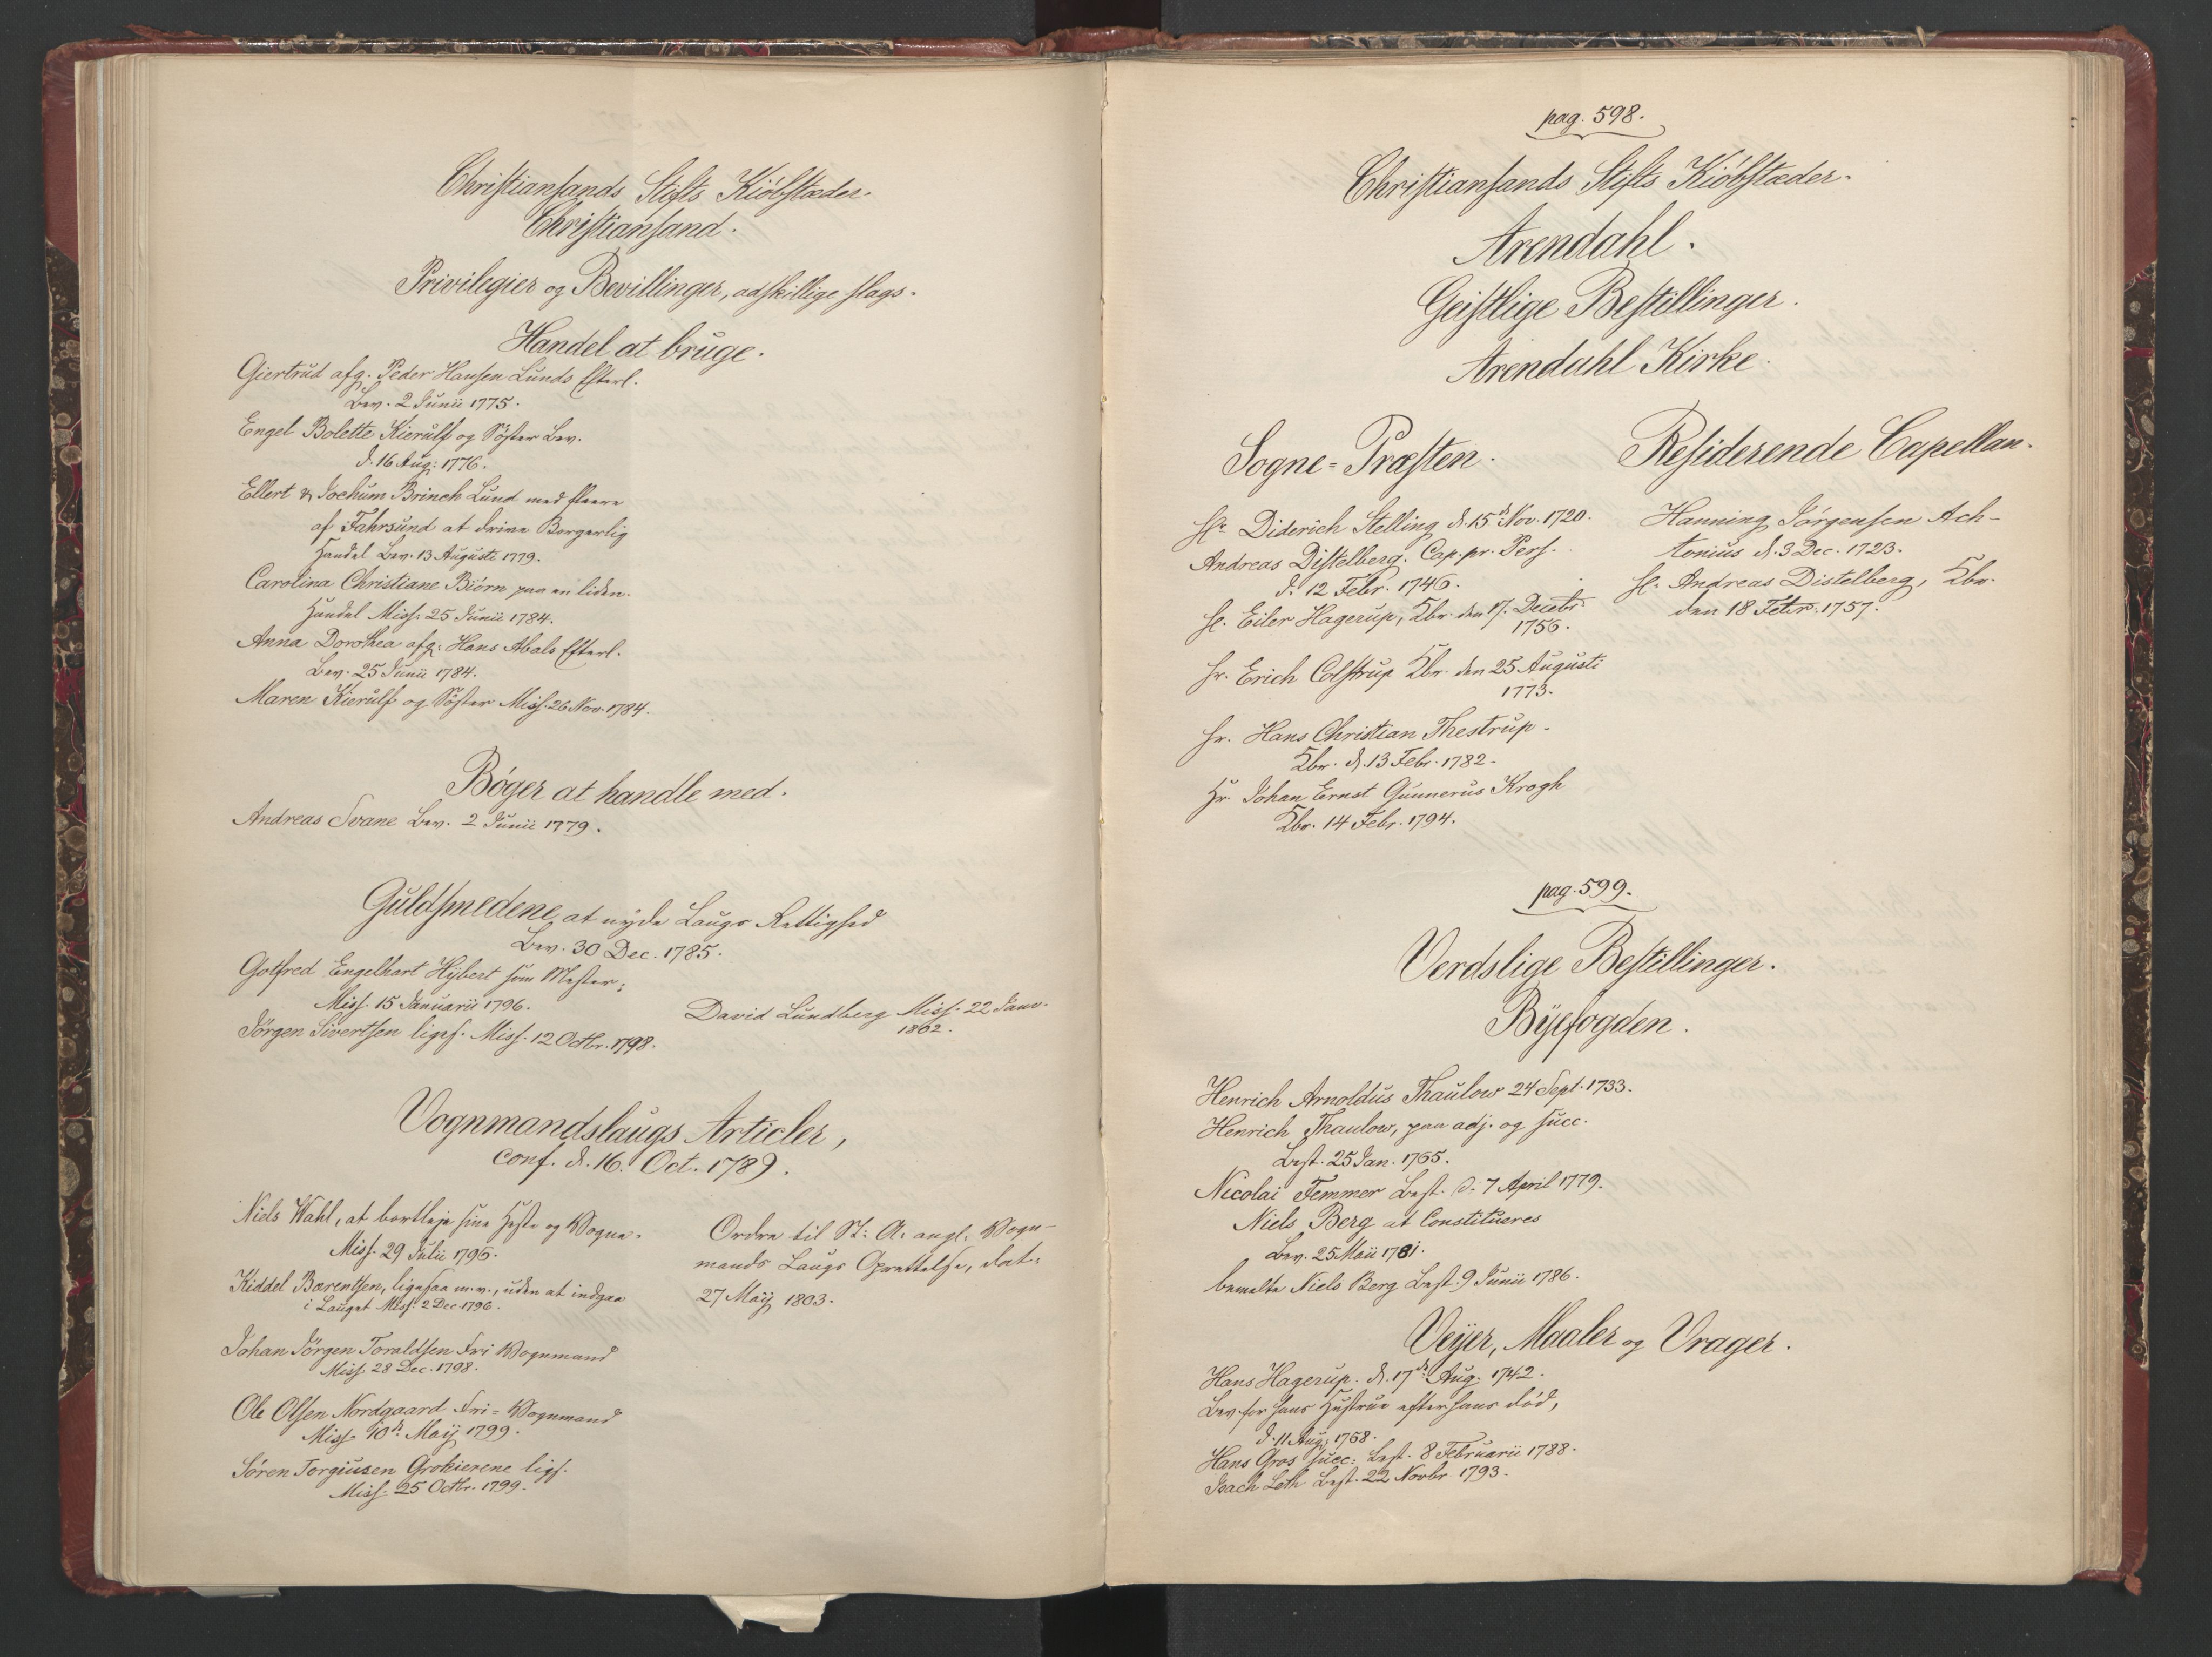 Christiansands Stifts Kiöbstæder.
Christiansand.
Privilegier og Bevillinger, adskillige slags.
Handel at bruge.
Giertrud afg. Peder Hansen Lunds Efterl.
Bev. 2 Junii 1775.
Engel Bolette Kierulf og Söster Bev.
d. 16 Aug: 1776.
Ellert & Jochum Brinch Lund med fleere
af Fahrsund at drive Borgerlig
Handel Bev. 13 Augusti 1779.
Carolina Christiane Biörn paa en liden
Handel Miss: 25 Junii 1784.
Anna Dorothea afg: Hans Abels Efterl.
Bev. 25 Junii 1784.
Maren Kierulf og Söster Miss. 26 Nov. 1784.
Böger at handle med.
Andreas Svane Bev. 2 Junii 1779.
Guldsmedene at nyde Laugs Rettighed
Bev. 30 Dec. 1785.
Gotfred Engelhart Hÿbert som Mester;
Miss. 15 Januarii 1796.
Jörgen Sivertsen liges. Miss. 12 Octbr. 1798.
David Lundberg Miss. 22 Janv.
1802.
Vognmandslaugs Articler,
conf. d. 16. Oct. 1789.
Niels Wahl, at bortleje sine Heste og Vogne.
Miss. 29 Julii 1796.
Kiddel Barentsen, ligesaa m.v., uden at indgaa
i Lauget Miss: 2 Dec. 1796.
Johan Jörgen Toraldsen Fri Vognmand
Miss. 28 Dec. 1798.
Ole Olsen Nordgaard Fri-Vognmand
Miss. 10de Maij 1799.
Sören Torgiusen Grokierene ligs.
Miss. 25 Octbr. 1799.
Ordre til St: A: angl: Vogn-
mands Laugs Oprettelse, dat:
27 Maij 1803.
pag. 598.
Christiansands Stifts Kiöbstæder.
Arendahl.
Geistlige Bestillinger.
Arendahl Kirke.
Sogne-Præsten.
Hr. Diderich Stelling d. 15de Nov. 1720.
Andreas Distelberg. Cap. pr. Pers.
d. 12 Febr. 1746.
Hr. Eiler Hagerup, Kbr. den 17. Decebr
1756.
Hr. Erich Colstrup Kbr. den 25 Augusti
1773.
Hr. Hans Christian Thestrup.
Kbr. d. 13 Febr. 1782.
Hr. Johan Ernst Gunnerus Krogh
Kbr. 14 Febr. 1794.
Residerende Capellan.
Hanning Jörgensen Ach-
tonius d. 3 Dec. 1723.
Hr. Andreas Distelberg, Kbr.
den 18 Febr. 1757.
pag. 599.
Verdslige Bestillinger.
Byefogden.
Henrich Arnoldus Thaulow 24 Sept. 1733.
Henrich Thaulow, paa adj. og succ.
Best. 25 Jan. 1765.
Nicolai Femmer Best. d. 7 April 1779.
Niels Berg at Constitueres
Bev. 25 Maii 1781.
bemelte Niels Berg Best. 9 Junii 1786.
Veijer, Maaler og Vrager.
Hans Hagerup. d. 17de Aug. 1742.
Bev for hans Hustrue efter hans död,
d. 11 Aug: 1758.
Hans Gros succ: Best. 8 Februarii 1788.
Isach Loth Best. 22 Novbr. 1793.